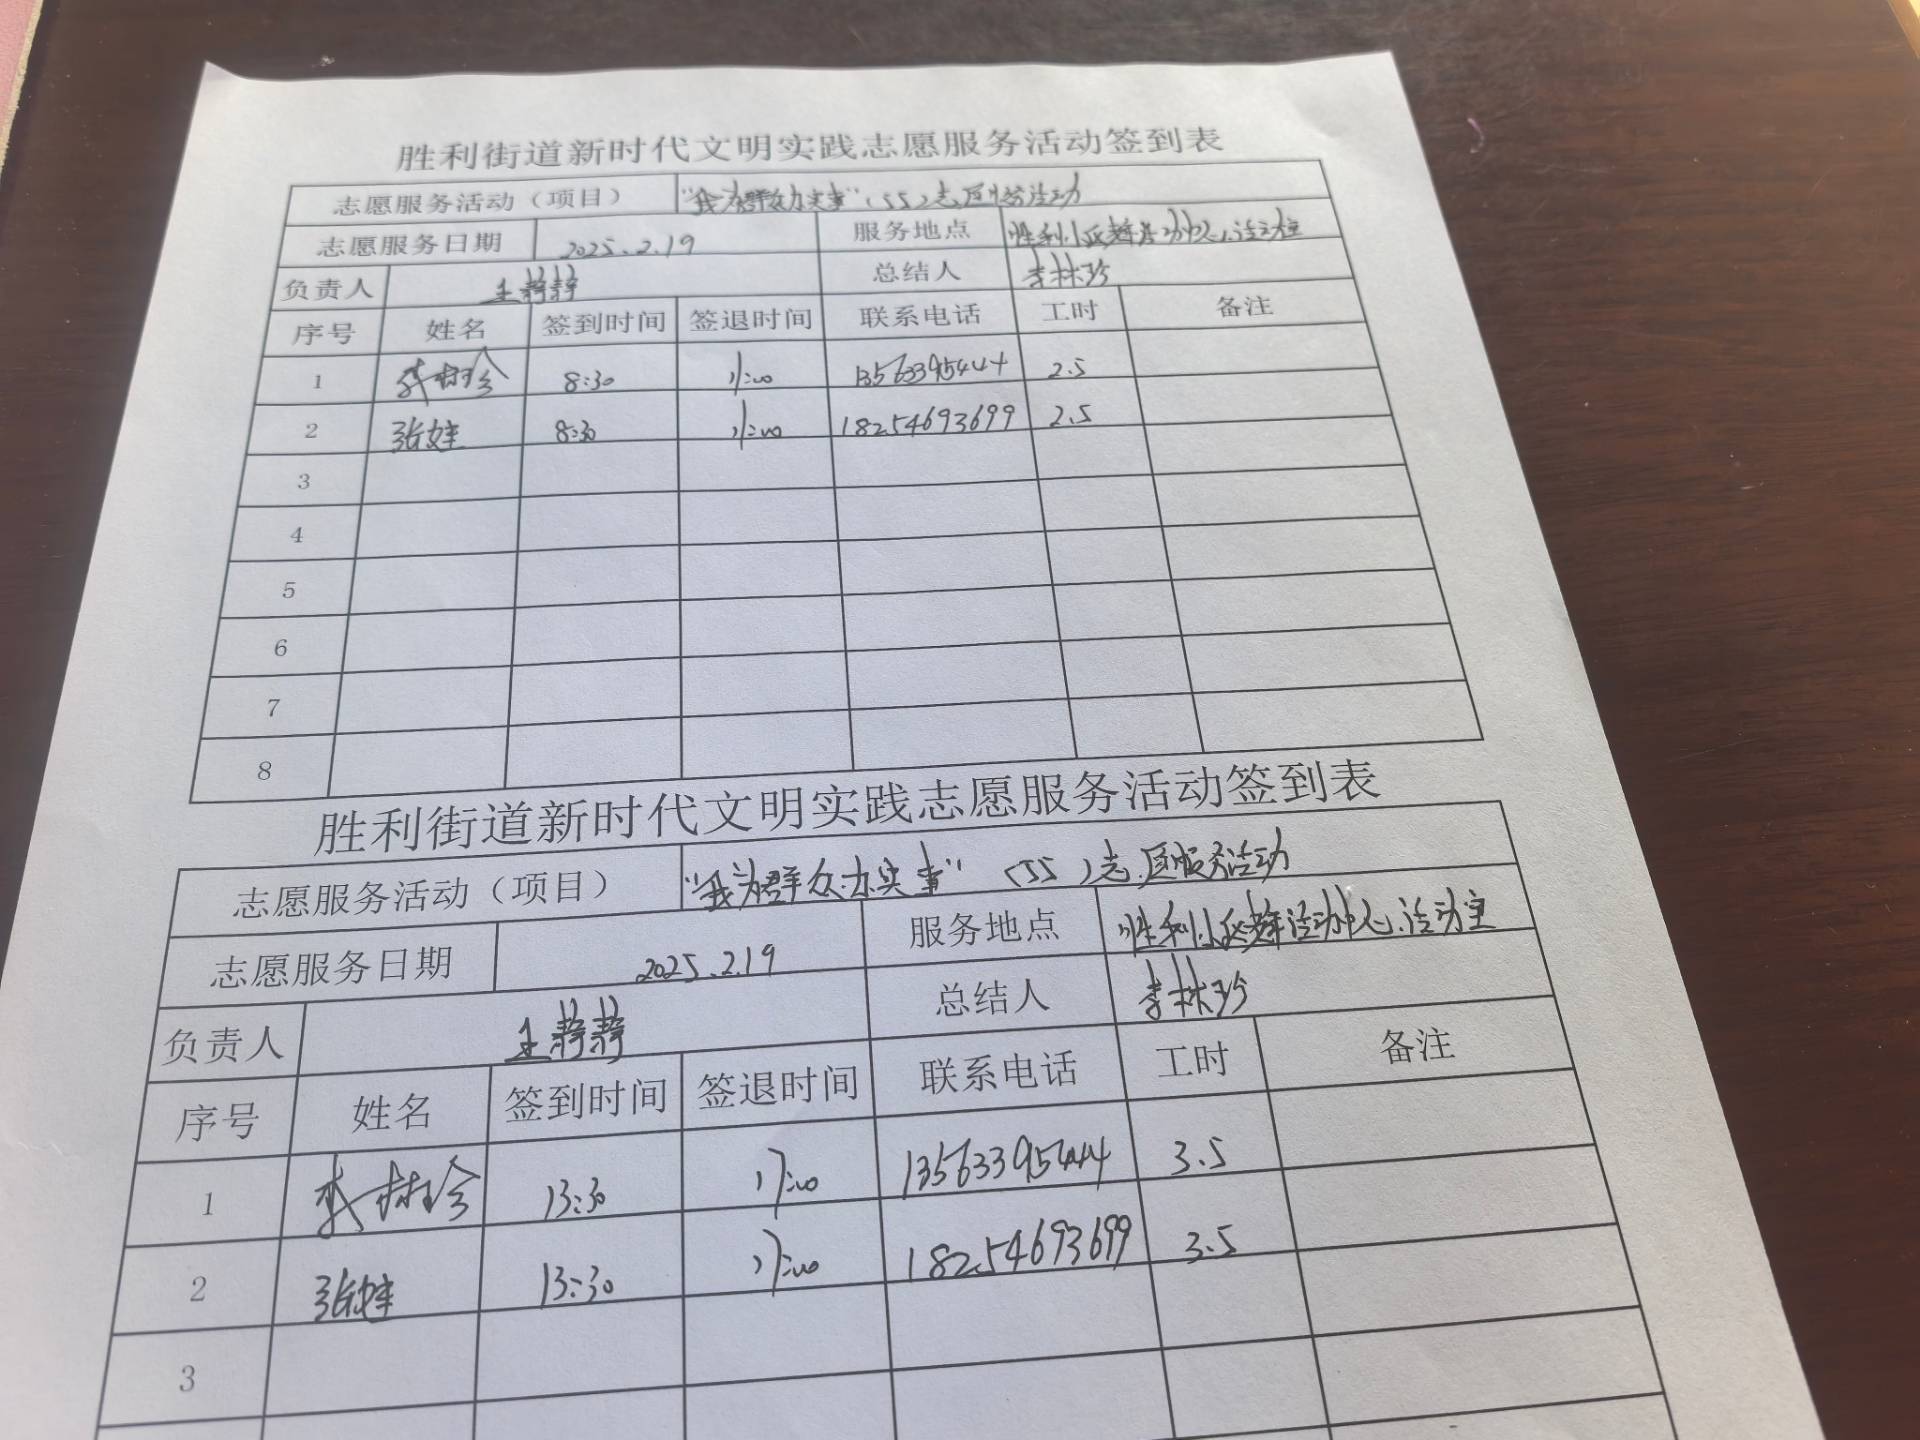 胜利街道新时代文明实践志愿服务活动签到表
志愿服务活动（项目） "我为群众办实事"（55）志愿服务活动
志愿服务日期 2025.2.19 服务地点 胜利小区群活动中心活动室
负责人 王静静 总结人 李林珍
序号 姓名 签到时间 签退时间 联系电话 工时 备注
1 李林珍 8:30 11:00 13563395444 2.5
2 张娃 8:30 11:00 18254693699 2.5
3
4
5
6
7
8
胜利街道新时代文明实践志愿服务活动签到表
志愿服务活动（项目） "我为群众办实事"（55）志愿服务活动
志愿服务日期 2025.2.19 服务地点 胜利小区群活动中心活动室
负责人 王静静 总结人 李林珍
序号 姓名 签到时间 签退时间 联系电话 工时 备注
1 李林珍 13:30 17:00 13563395444 3.5
2 张娃 13:30 17:00 18254693699 3.5
3